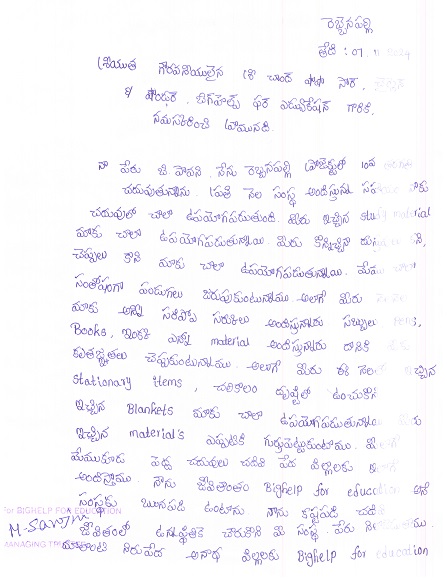 రెబ్బెనపల్లి
తేది : 07.11.2024
శ్రీయుత గౌరవనీయులైన శ్రీ చాంద్ పాషా సార్,
& ఫౌండర్, బిగ్‌హెల్ప్ ఫర్ ఎడ్యుకేషన్ గారికి,
నమస్కరించి వ్రాయునది.
నా పేరు జి. పావని. నేను రెబ్బనపల్లి ప్రాజెక్టులో 10వ తరగతి
చదువుతున్నాను. ప్రతి నెల సంస్థ అందిస్తున్న మాకు
చదువులో చాలా ఉపయోగపడుతుంది. మీరు ఇచ్చిన study material
మాకు చాలా ఉపయోగపడుతున్నాయి. మీరు కాని,
చెప్పులు కాని మాకు చాలా ఉపయోగపడుతున్నాయి. మేము చాలా
సంతోషంగా పండుగలు జరుపుకుంటున్నాము. అలాగే మీరు
మాకు అన్ని సరిపోవు సరుకులు అందిస్తున్నారు సబ్బులు items,
Books, ఇంకా ఎన్నో material అందిస్తున్నారు దానికి
కృతజ్ఞతలు చెప్పుకుంటున్నాము. అలాగే మీరు ఈ నెల ఇచ్చిన
stationary items, చలికాలం దృష్టిలో ఉంచుకొని
ఇచ్చిన Blankets మాకు చాలా ఉపయోగపడుతున్నాయి. మీరు
ఇచ్చిన material's ఎప్పటికి గుర్తుపెట్టుకుంటాము.
మేముకూడ పెద్ద చదువులు చదివి పేద పిల్లలకు
అందిస్తాము. నేను జీవితాంతం Bighelp for education అనే
సంస్థకు ఋణపడి ఉంటాను. నాను కష్టపడి చదివి
జీవితంలో ఉన్నతస్థితికి చేరుకొని మా సంస్థ పేరు
మాలాంటి నిరుపేద అనాథ పిల్లలకు Bighelp for education
For BIGHELP FOR EDUCATION
MANAGING TR